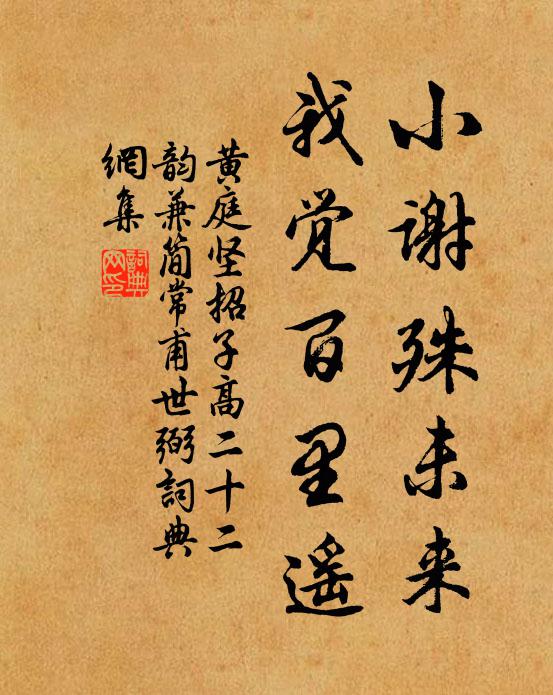 小谢殊未来
我觉百里遥
黄庭坚招子高二十二
韵兼简常甫世弼詞典
網集
詞典
网印